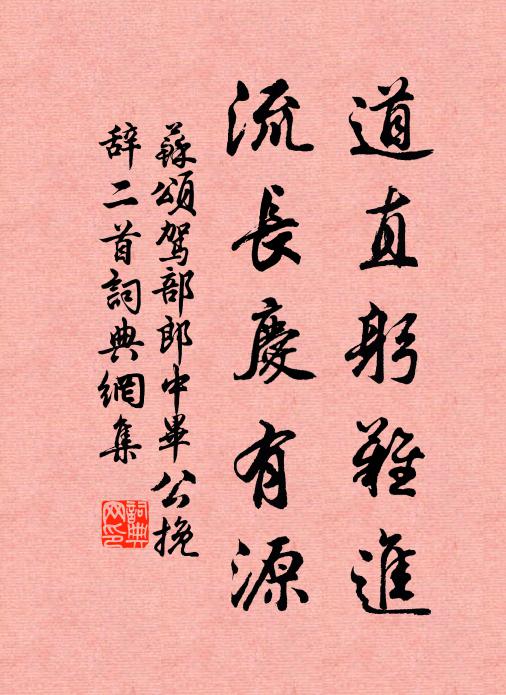 道直躬難進
流長慶有源
蘇頌駕部郎中畢公挽
辞二首詞典網集
詞典网印